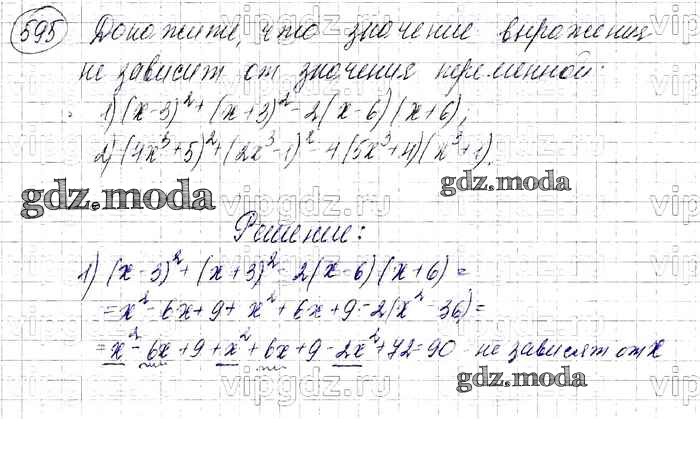 595 Докажите, что значение выражения
не зависит от значения переменной:
1) (x-3)²+(x+3)²-2(x-6)(x+6);
2) (4x³+5)²+(2x³-1)²-4(5x³+4)(x³+1).
gdz.moda
gdz.moda
Решение:
1) (x-3)²+(x+3)²-2(x-6)(x+6)=
=x²-6x+9+x²+6x+9-2(x²-36)=
=x²-6x+9+x²+6x+9-2x²+72=90 не зависят от x
gdz.moda
vipgdz.ru